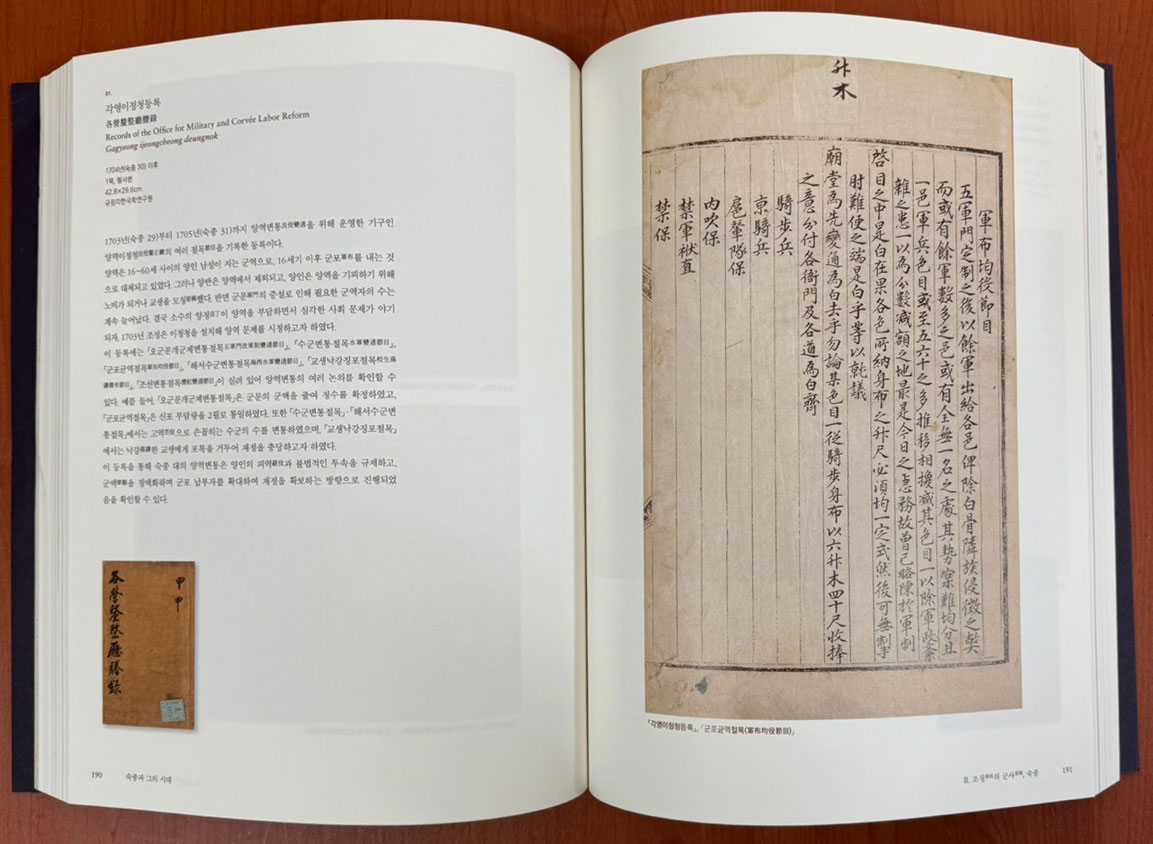 81.
각영이정청등록
各營釐整廳謄錄
Records of the Office for Military and Corvée Labor Reform
Gagyeong ijeongcheong deungnok
1704년(숙종 30) 이후
1책, 필사본
42.8×29.6cm
규장각한국학연구원
1703년(숙종 29)부터 1705년(숙종 31)까지 양역변통良役變通을 위해 운영한 기구인
양역이정청良役釐正廳의 여러 절목節目을 기록한 등록이다.
양역은 16~60세 사이의 양인 남성이 지는 군역으로, 16세기 이후 군포軍布를 내는 것
으로 대체되고 있었다. 그러나 양반은 양역에서 제외되고, 양인은 양역을 기피하기 위해
노비가 되거나 교생을 모칭冒稱했다. 반면 군문軍門의 증설로 인해 필요한 군역자의 수는
계속 늘어났다. 결국 소수의 양정良丁이 양역을 부담하면서 심각한 사회 문제가 야기
되자, 1703년 조정은 이정청을 설치해 양역 문제를 시정하고자 하였다.
이 등록에는 「오군문개군제변통절목五軍門改軍制變通節目」, 「수군변통절목水軍變通節目」,
「군포균역절목軍布均役節目」, 「해서수군변통절목海西水軍變通節目」, 「교생낙강징포절목校生落
講徵布節目」, 「조선변통절목漕船變通節目」이 실려 있어 양역변통의 여러 논의를 확인할 수
있다. 예를 들어, 「오군문개군제변통절목」은 군문의 군액을 줄여 정수를 확정하였고,
「군포균역절목」은 신포 부담량을 2필로 통일하였다. 또한 「수군변통절목」·「해서수군변
통절목」에서는 고역苦役으로 손꼽히는 수군의 수를 변통하였으며, 「교생낙강징포절목」
에서는 낙강落講한 교생에게 포목을 거두어 재정을 충당하고자 하였다.
이 등록을 통해 숙종 대의 양역변통은 양인의 피역避役과 불법적인 투속을 규제하고,
군액軍額을 정액화하며 군포 납부자를 확대하여 재정을 확보하는 방향으로 진행되었
음을 확인할 수 있다.
甲申
各營釐整廳謄錄
190
숙종과 그의 시대
升木
軍布均役節目
五軍門定制之後以餘軍出給各邑俾除白骨隣族侵徵之弊
而或有餘軍數多之邑或有全無一名之處其勢案難均分且
一邑軍兵色目或至五六十之多推移相換減其色目一以除軍政紊
雜之患一以爲分數減額之地最是今日之急務故曾已略陳於軍制
啓目之中是白在果各色所納身布之升尺必須均一定式然後可無掣
肘難便之端是白乎等以就議
廟堂爲先變通爲白去乎勿論某色目一從騎步身布以六升木四十尺收捧
之意分付各衙門及各道爲白齊
騎步兵
京騎兵
扈輦隊保
內吹保
禁軍袱直
禁保
「각영이정청등록」, 「군포균역절목(軍布均役節目)」
Ⅱ. 조정朝廷의 군사軍師, 숙종
191